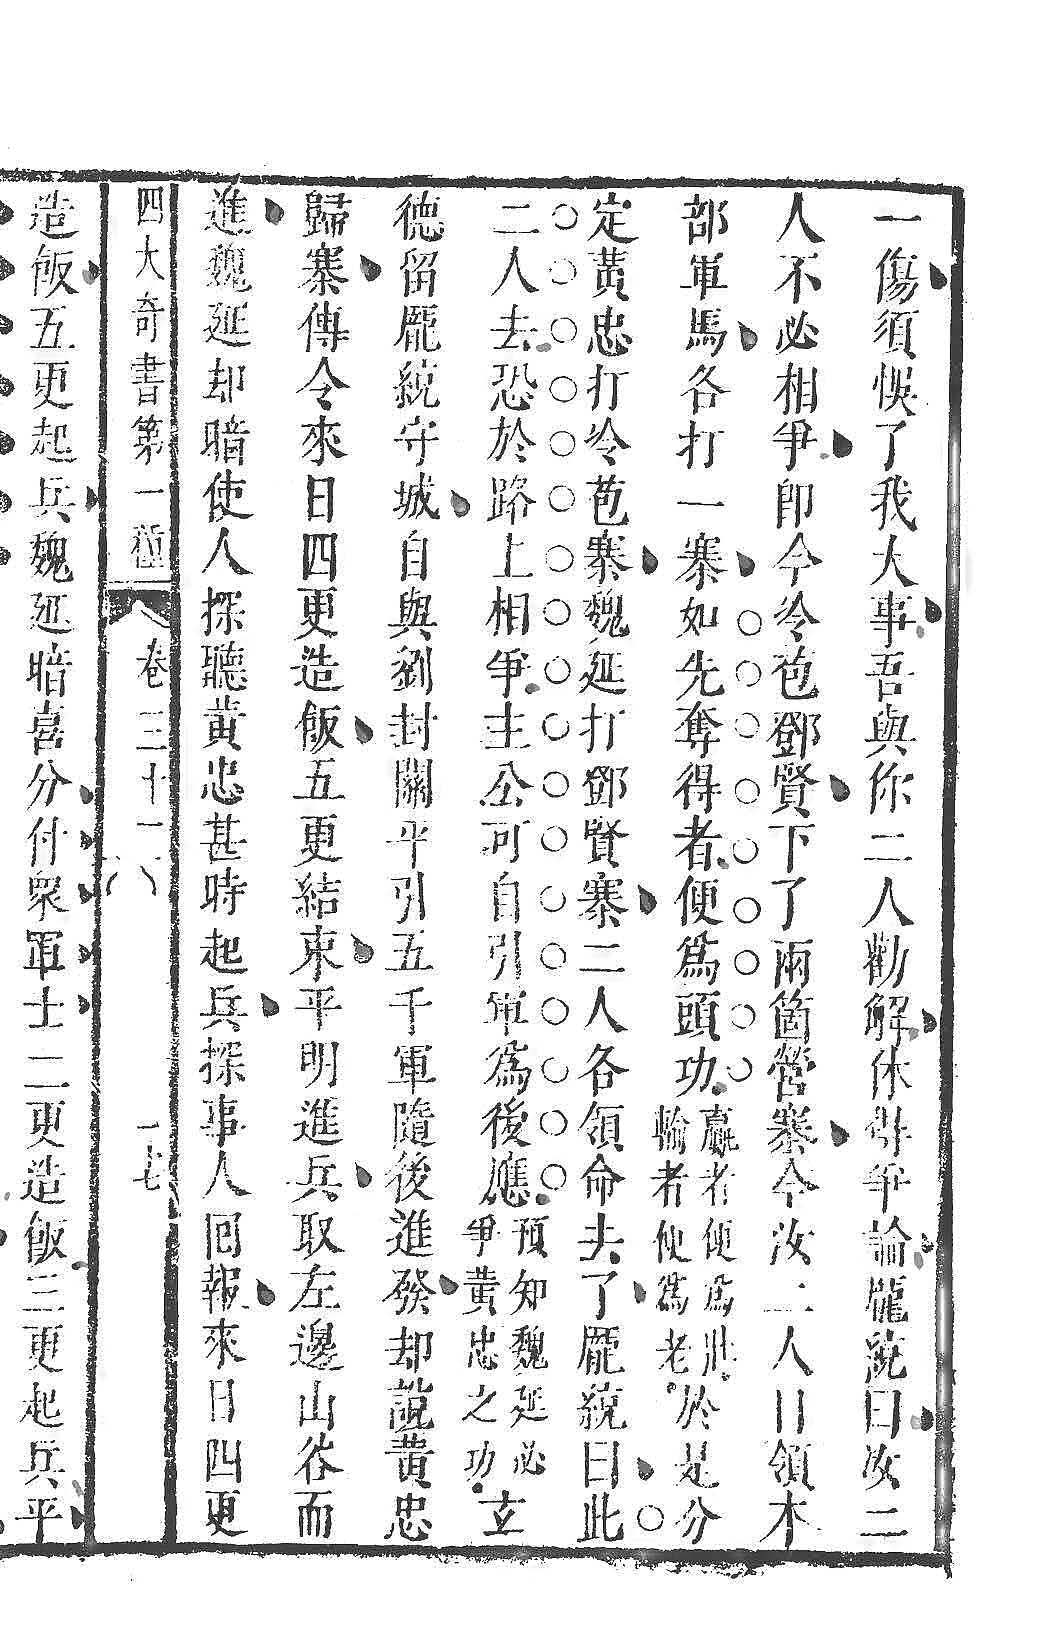 一傷須悞了我大事吾與你二人勸解休得爭論龐統曰汝二
人不必相爭即今冷苞鄧賢下了兩箇營寨今汝二人自領本
部軍馬各打一寨如先奪得者便爲頭功贏者便爲壯輸者便爲老於是分
定黃忠打冷苞寨魏延打鄧賢寨二人各領命去了龐統曰此
二人去恐於路上相爭主公可自引軍爲後應預知魏延必爭黃忠之功玄
德留龐統守城自與劉封關平引五千軍隨後進發却說黃忠
歸寨傳令來日四更造飯五更結束平明進兵取左邊山谷而
進魏延却暗使人探聽黃忠甚時起兵探事人囘報來日四更
四大奇書第一種 卷三十一 十七
造飯五更起兵魏延暗喜分付衆軍士二更造飯三更起兵平